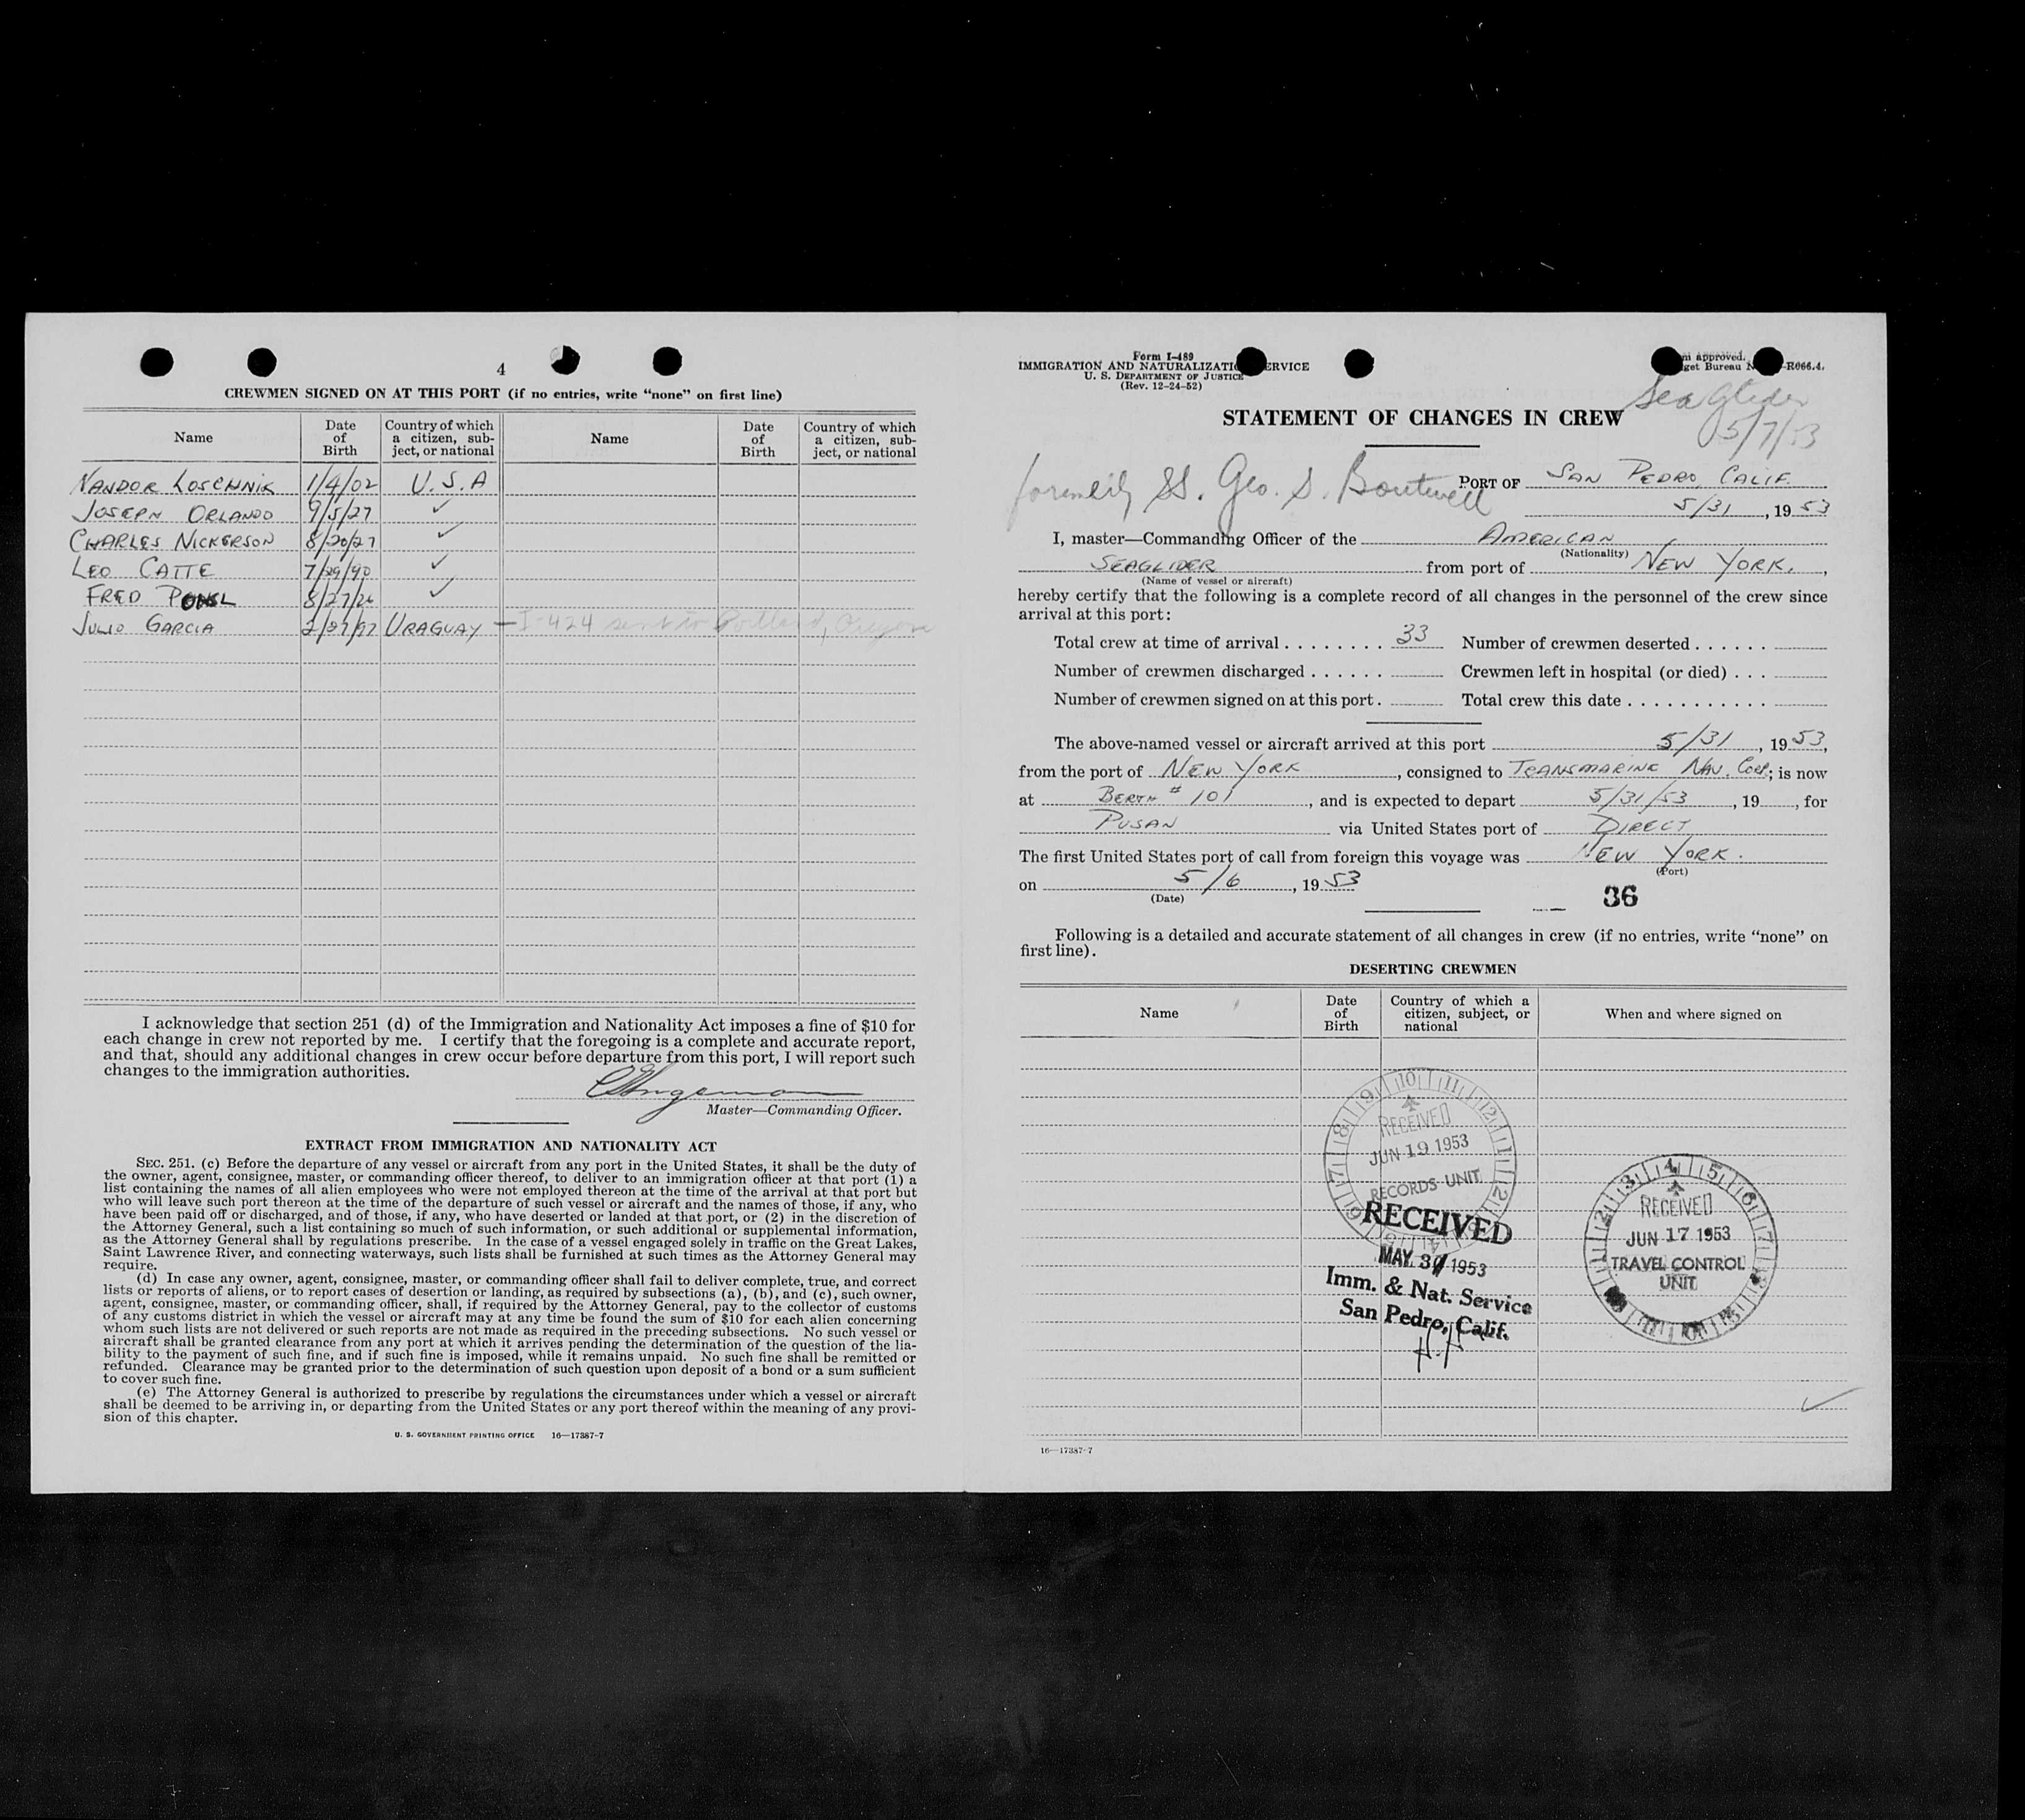 4
CREWMEN SIGNED ON AT THIS PORT (if no entries, write “none” on first line)
Name
Date of Birth
Country of which a citizen, subject, or national
Name
Date of Birth
Country of which a citizen, subject, or national
NANDOR LOSCHNIK 1/4/02 U.S.A
JOSEPH ORLANDO 9/5/27 ✓
CHARLES NICKERSON 8/20/27 ✓
LEO CATTE 7/29/90 ✓
FRED 8/27/26 ✓
JULIO GARCIA 2/27/97 URAGUAY — I-424 sent to Portland, Oregon
I acknowledge that section 251 (d) of the Immigration and Nationality Act imposes a fine of $10 for
each change in crew not reported by me. I certify that the foregoing is a complete and accurate report,
and that, should any additional changes in crew occur before departure from this port, I will report such
changes to the immigration authorities.
Master—Commanding Officer.
EXTRACT FROM IMMIGRATION AND NATIONALITY ACT
SEC. 251. (c) Before the departure of any vessel or aircraft from any port in the United States, it shall be the duty of
the owner, agent, consignee, master, or commanding officer thereof, to deliver to an immigration officer at that port (1) a
list containing the names of all alien employees who were not employed thereon at the time of the arrival at that port but
who will leave such port thereon at the time of the departure of such vessel or aircraft and the names of those, if any, who
have been paid off or discharged, and of those, if any, who have deserted or landed at that port, or (2) in the discretion of
the Attorney General, such a list containing so much of such information, or such additional or supplemental information,
as the Attorney General shall by regulations prescribe. In the case of a vessel engaged solely in traffic on the Great Lakes,
Saint Lawrence River, and connecting waterways, such lists shall be furnished at such times as the Attorney General may
require.
(d) In case any owner, agent, consignee, master, or commanding officer shall fail to deliver complete, true, and correct
lists or reports of aliens, or to report cases of desertion or landing, as required by subsections (a), (b), and (c), such owner,
agent, consignee, master, or commanding officer, shall, if required by the Attorney General, pay to the collector of customs
of any customs district in which the vessel or aircraft may at any time be found the sum of $10 for each alien concerning
whom such lists are not delivered or such reports are not made as required in the preceding subsections. No such vessel or
aircraft shall be granted clearance from any port at which it arrives pending the determination of the question of the lia-
bility to the payment of such fine, and if such fine is imposed, while it remains unpaid. No such fine shall be remitted or
refunded. Clearance may be granted prior to the determination of such question upon deposit of a bond or a sum sufficient
to cover such fine.
(e) The Attorney General is authorized to prescribe by regulations the circumstances under which a vessel or aircraft
shall be deemed to be arriving in, or departing from the United States or any port thereof within the meaning of any provi-
sion of this chapter.
U. S. GOVERNMENT PRINTING OFFICE 16—17387-7
Form I-489
IMMIGRATION AND NATURALIZATION SERVICE
U. S. DEPARTMENT OF JUSTICE
(Rev. 12-24-52)
approved.
Bureau -R066.4.
Sea Glider
5/7/53
STATEMENT OF CHANGES IN CREW
formerly SS. Geo. S. Boutwell
PORT OF SAN PEDRO, CALIF.
5/31, 1953
I, master—Commanding Officer of the AMERICAN
(Nationality)
SEAGLIDER from port of NEW YORK.,
(Name of vessel or aircraft)
hereby certify that the following is a complete record of all changes in the personnel of the crew since
arrival at this port:
Total crew at time of arrival . . . . . . . . 33 Number of crewmen deserted . . . . . .
Number of crewmen discharged . . . . . . Crewmen left in hospital (or died) . . .
Number of crewmen signed on at this port . Total crew this date . . . . . . . . . . .
The above-named vessel or aircraft arrived at this port 5/31, 1953,
from the port of NEW YORK, consigned to TRANSMARINE NAV. CORP.; is now
at BERTH # 101, and is expected to depart 5/31/53, 19, for
PUSAN via United States port of DIRECT
The first United States port of call from foreign this voyage was NEW YORK.
(Port)
on 5/6, 1953
(Date)
36
Following is a detailed and accurate statement of all changes in crew (if no entries, write “none” on
first line).
DESERTING CREWMEN
Name
Date of Birth
Country of which a citizen, subject, or national
When and where signed on
RECEIVED
JUN 19 1953
RECORDS UNIT
RECEIVED
MAY 31 1953
Imm. & Nat. Service
San Pedro, Calif.
H.H.
RECEIVED
JUN 17 1953
TRAVEL CONTROL
UNIT
16—17387-7